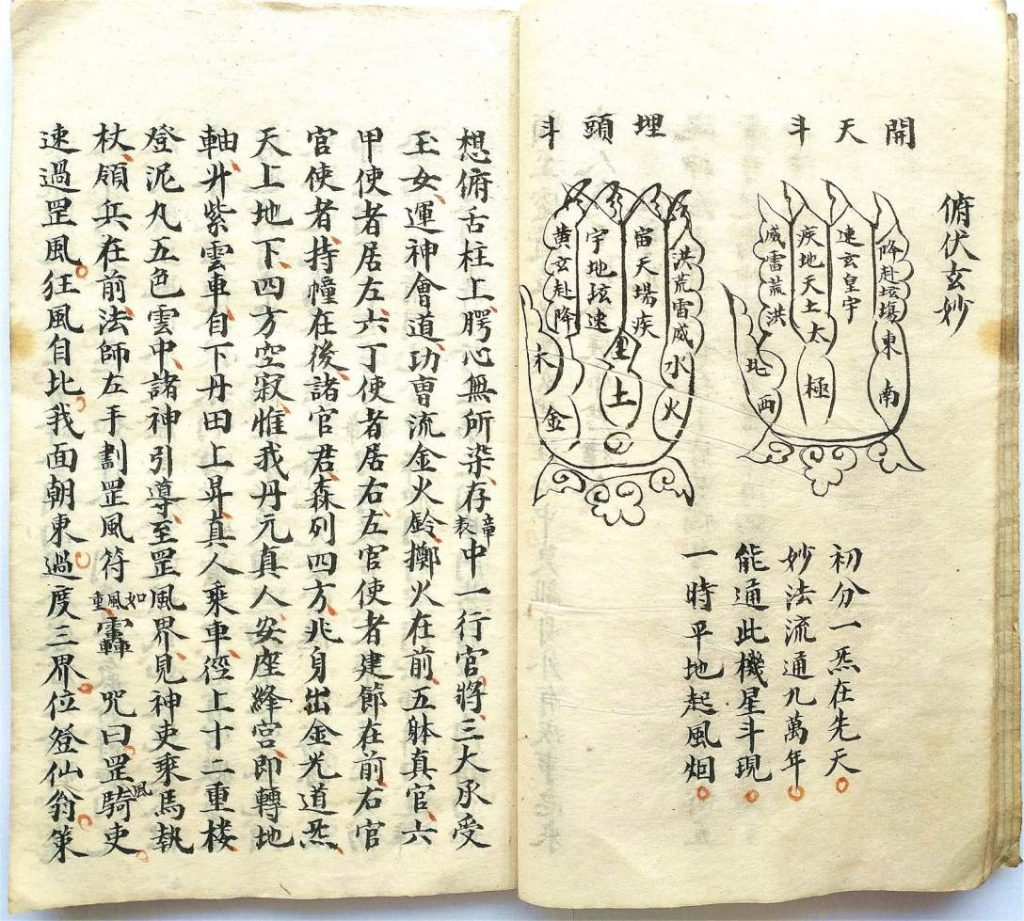 俯伏玄妙
開天斗
降赴垓塲東南
速玄皇宇
疾地天土太極
威雷荒洪北西
埋頭斗
洪荒雷威水火
宙天塲疾
宇地垓速
土
黄玄赴降
木金
初分一炁在先天
妙法流通九萬年
能通此機星斗現
一時平地起風烟
想俯舌柱上腭心無所染存章表中一行官將三大承受
玉女運神會道功曹流金火鈴擲火在前五躰真官六
甲使者居左六丁使者居右左官使者建節在前右官
官使者持幢在後諸官君森列四方兆身出金光道炁
天上地下四方空寂惟我丹元真人安座絳宮即轉地
軸升紫雲車自下丹田上昇真人乘車徑上十二重楼
登泥丸五色雲中諸神引導至罡風界見神吏乘馬執
杖領兵在前法師左手劃罡風符如風重轟咒曰罡風騎吏
速過罡風狂風自比我面朝東過度三界位登仙翁策